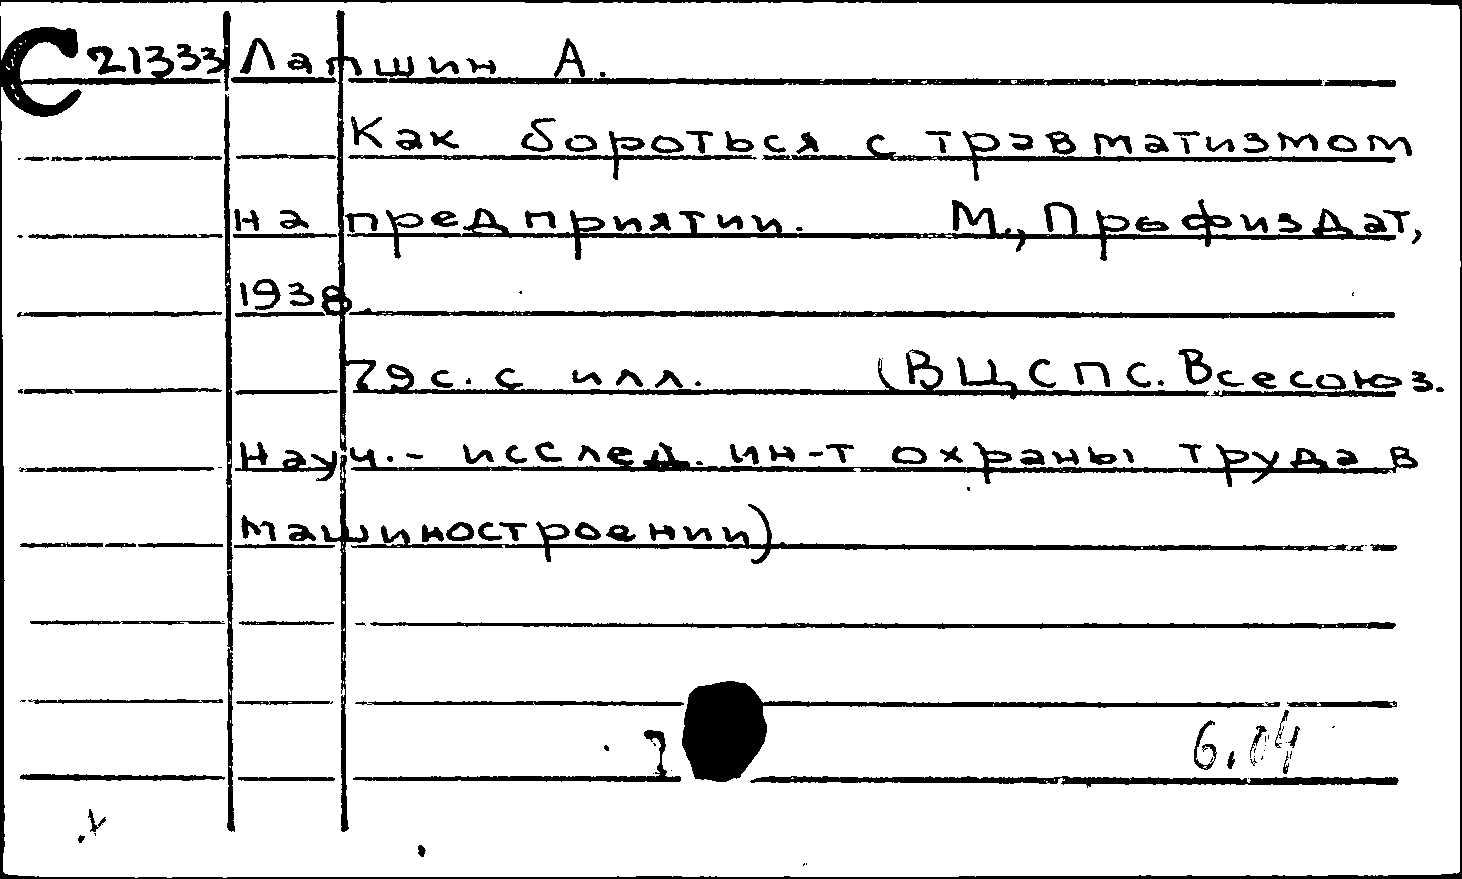 С 21333 Лапшин А.
Как бороться с травматизмом
на предприятии. М., Профиздат,
1938.
79 с. с илл. (ВЦСПС. Всесоюз.
Науч.- исслед. ин-т охраны труда в
машиностроении)
6.04